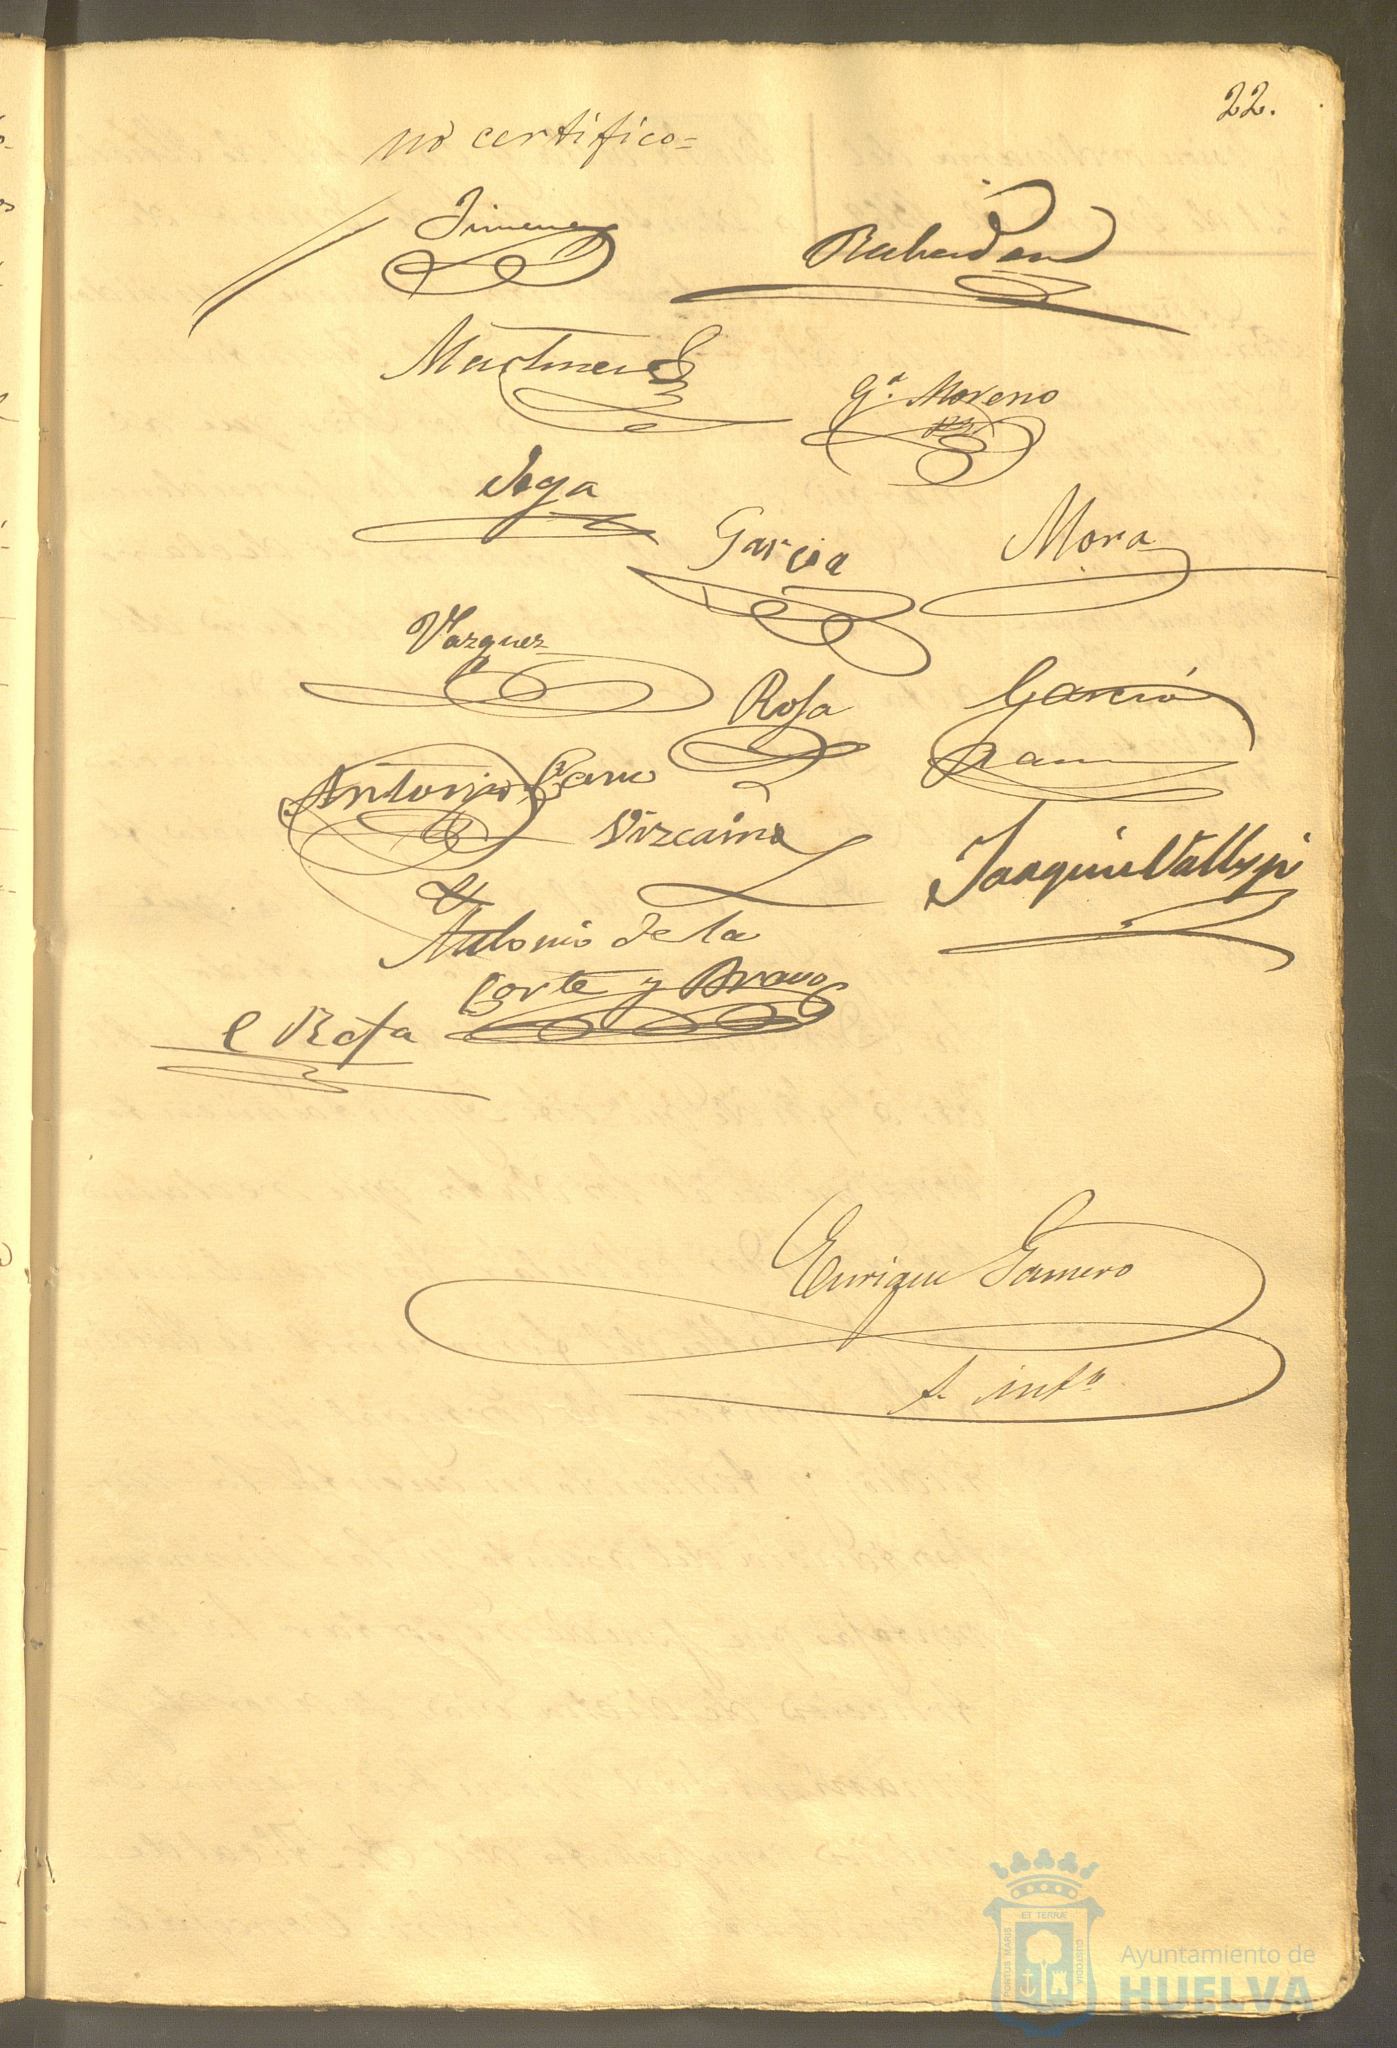 22.
no certifico=
Jimenez
Rabadan
Martinez
Ga. Moreno
Vega
Garcia
Mora
Vazquez
Rosa
Garcia
Ram
Antonio Cano
Vizcaino
Joaquin Vallespi
Antonio de la
Corte y Bravo
C Rosa
Enrique Gamero
s. into
ET TERRÆ
PORTUS MARIS
CUSTODIA
Ayuntamiento de
HUELVA